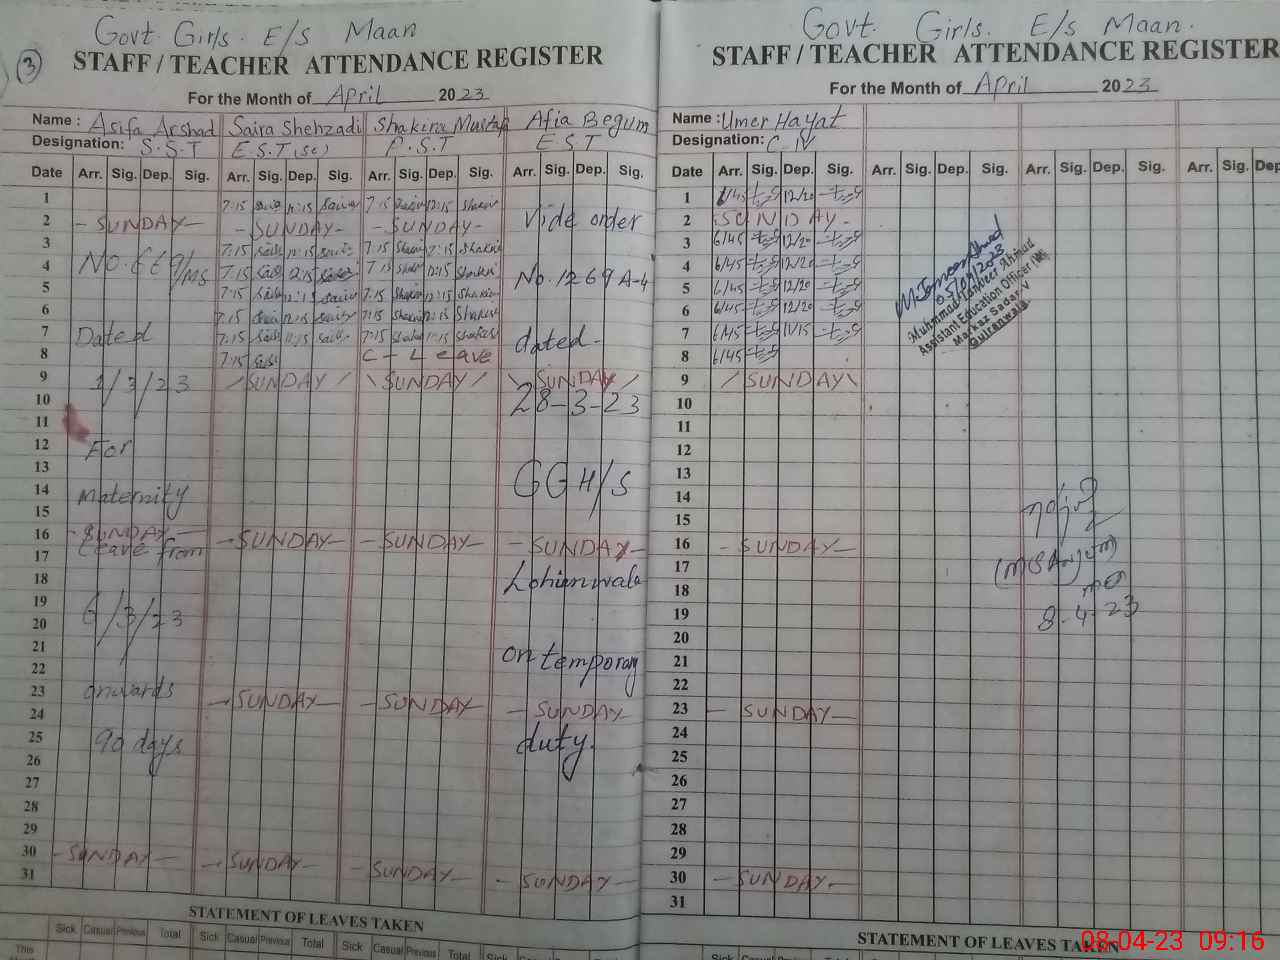 Govt. Girls. E/S Maan
3
STAFF / TEACHER ATTENDANCE REGISTER
For the Month of April 2023
Name : Asifa Arshad Saira Shehzadi Shakira Mustafa Afia Begum
Designation: S.S.T E.S.T (SC) P.S.T E.S.T
Date Arr. Sig. Dep. Sig. Arr. Sig. Dep. Sig. Arr. Sig. Dep. Sig. Arr. Sig. Dep. Sig.
1 7:15 12:15 7:15 12:15
Vide order
2 - SUNDAY - - SUNDAY - - SUNDAY -
3 7:15 12:15 7:15 12:15
4 No. 669/MS 7:15 12:15 7:15 12:15 No. 1269 A-4
5 7:15 12:15 7:15 12:15
6 7:15 12:15 7:15 12:15
7 Dated 7:15 11:15 7:15 11:15 dated.
8 7:15 C - Leave
9 1/3/23 / SUNDAY / \ SUNDAY / \ SUNDAY /
10 28-3-23
11
12 For
13
14 Maternity GGH/S
15
16 - SUNDAY - - SUNDAY - - SUNDAY - - SUNDAY -
17 Leave from
18 Lohianwala
19 6/3/23
20
21 on temporary
22
23 onwards - SUNDAY - - SUNDAY - - SUNDAY -
24
25 90 days duty.
26
27
28
29
30 - SUNDAY - - SUNDAY - - SUNDAY - - SUNDAY -
31
STATEMENT OF LEAVES TAKEN
Sick Casual Previous Total Sick Casual Previous Total Sick Casual Previous Total Sick Casual
This
Govt. Girls. E/S Maan.
STAFF / TEACHER ATTENDANCE REGISTER
For the Month of April 2023
Name : Umer Hayat
Designation: C-IV
Date Arr. Sig. Dep. Sig. Arr. Sig. Dep. Sig. Arr. Sig. Dep. Sig. Arr. Sig. Dep.
1 6/45 12/20
2 SUNDAY -
3 6/45 12/20
4 6/45 12/20
5 6/45 12/20
6 6/45 12/20
7 6/45 11/15
8 6/45
05/04/2023
Muhammad Tanveer Ahmad
Assistant Education Officer (M)
Markaz Sadar V
Gujranwala
9 / SUNDAY \
10
11
12
13
14
15
16 - SUNDAY -
17
(MS Anjum)
18
19 8-4-23
20
21
22
23 - SUNDAY -
24
25
26
27
28
29
30 - SUNDAY -
31
STATEMENT OF LEAVES TAKEN
Sick Casual Previous Total Sick Casual Previous Total
08-04-23 09:16